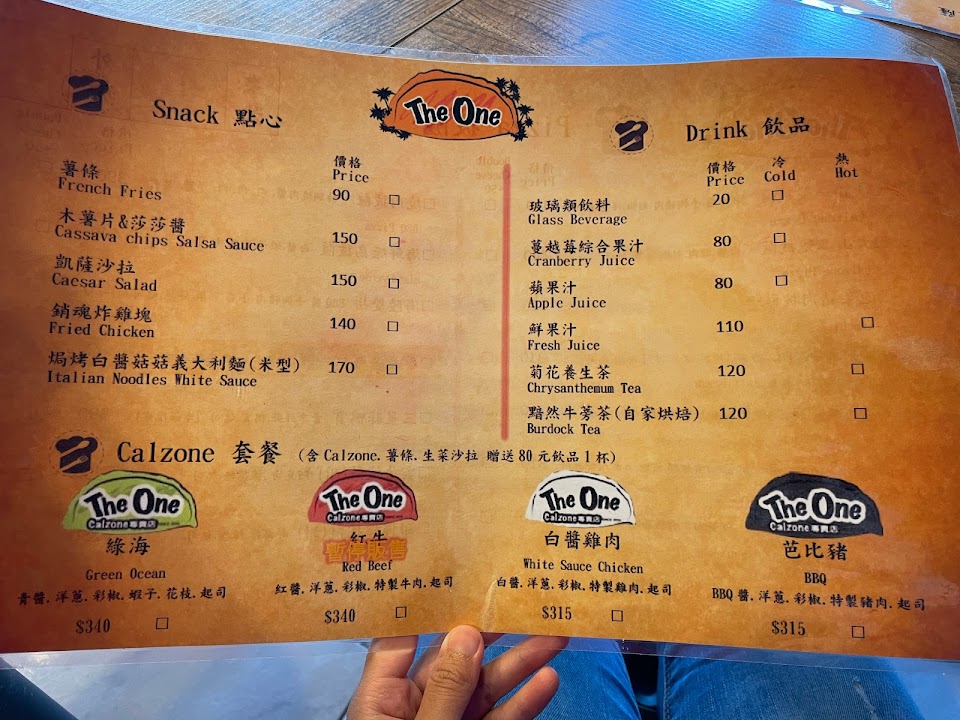 The One
Snack 點心
價格
Price
薯條
French Fries
90 □
木薯片&莎莎醬
Cassava chips Salsa Sauce
150 □
凱薩沙拉
Caesar Salad
150 □
銷魂炸雞塊
Fried Chicken
140 □
焗烤白醬菇菇義大利麵(米型)
Italian Noodles White Sauce
170 □
Drink 飲品
價格 冷 熱
Price Cold Hot
玻璃類飲料
Glass Beverage
20 □
蔓越莓綜合果汁
Cranberry Juice
80 □
蘋果汁
Apple Juice
80 □
鮮果汁
Fresh Juice
110 □
菊花養生茶
Chrysanthemum Tea
120 □
黯然牛蒡茶(自家烘焙)
Burdock Tea
120 □
Calzone 套餐 (含 Calzone.薯條.生菜沙拉 贈送 80 元飲品 1 杯)
The One
Calzone專賣店
綠海
Green Ocean
青醬.洋蔥.彩椒.蝦子.花枝.起司
$340 □
The One
Calzone專賣店
紅牛
暫停販售
Red Beef
紅醬.洋蔥.彩椒.特製牛肉.起司
$340 □
The One
Calzone專賣店
白醬雞肉
White Sauce Chicken
白醬.洋蔥.彩椒.特製雞肉.起司
$315 □
The One
Calzone專賣店
芭比豬
BBQ
BBQ 醬.洋蔥.彩椒.特製豬肉.起司
$315 □